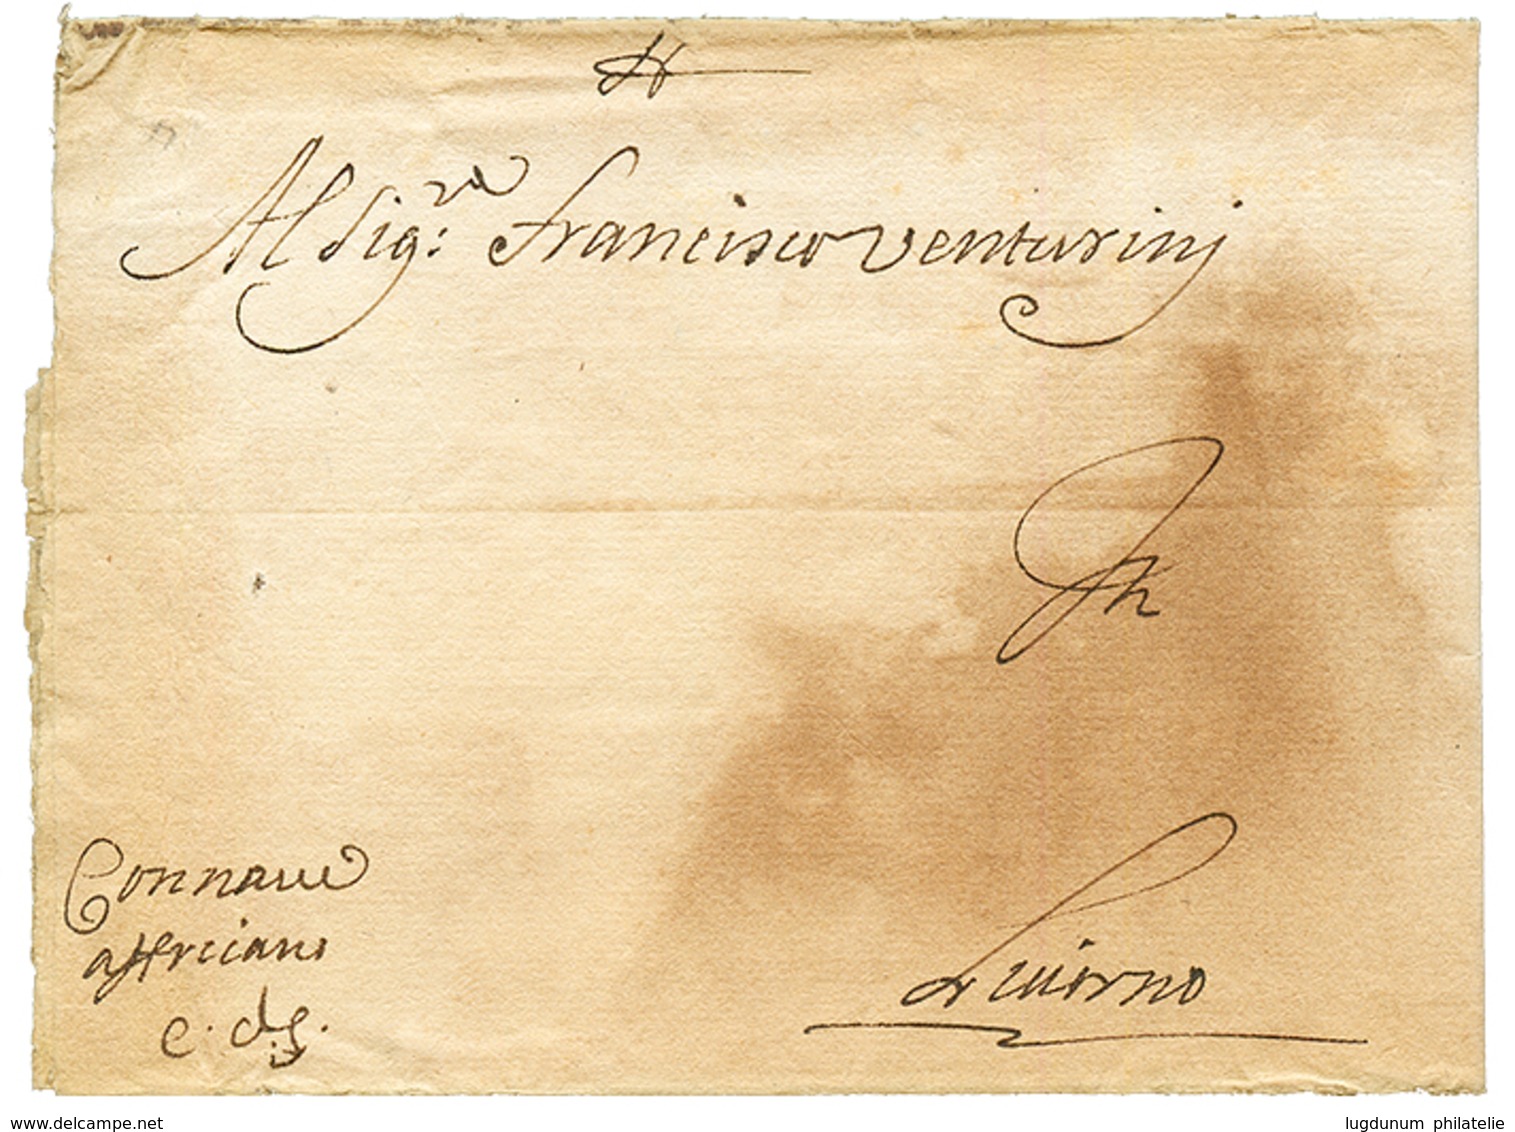 Al Sig:re Francisco Venturinj
Livorno
Con naue
e. d. g.
www.delcampe.net
lugdunum philatelie